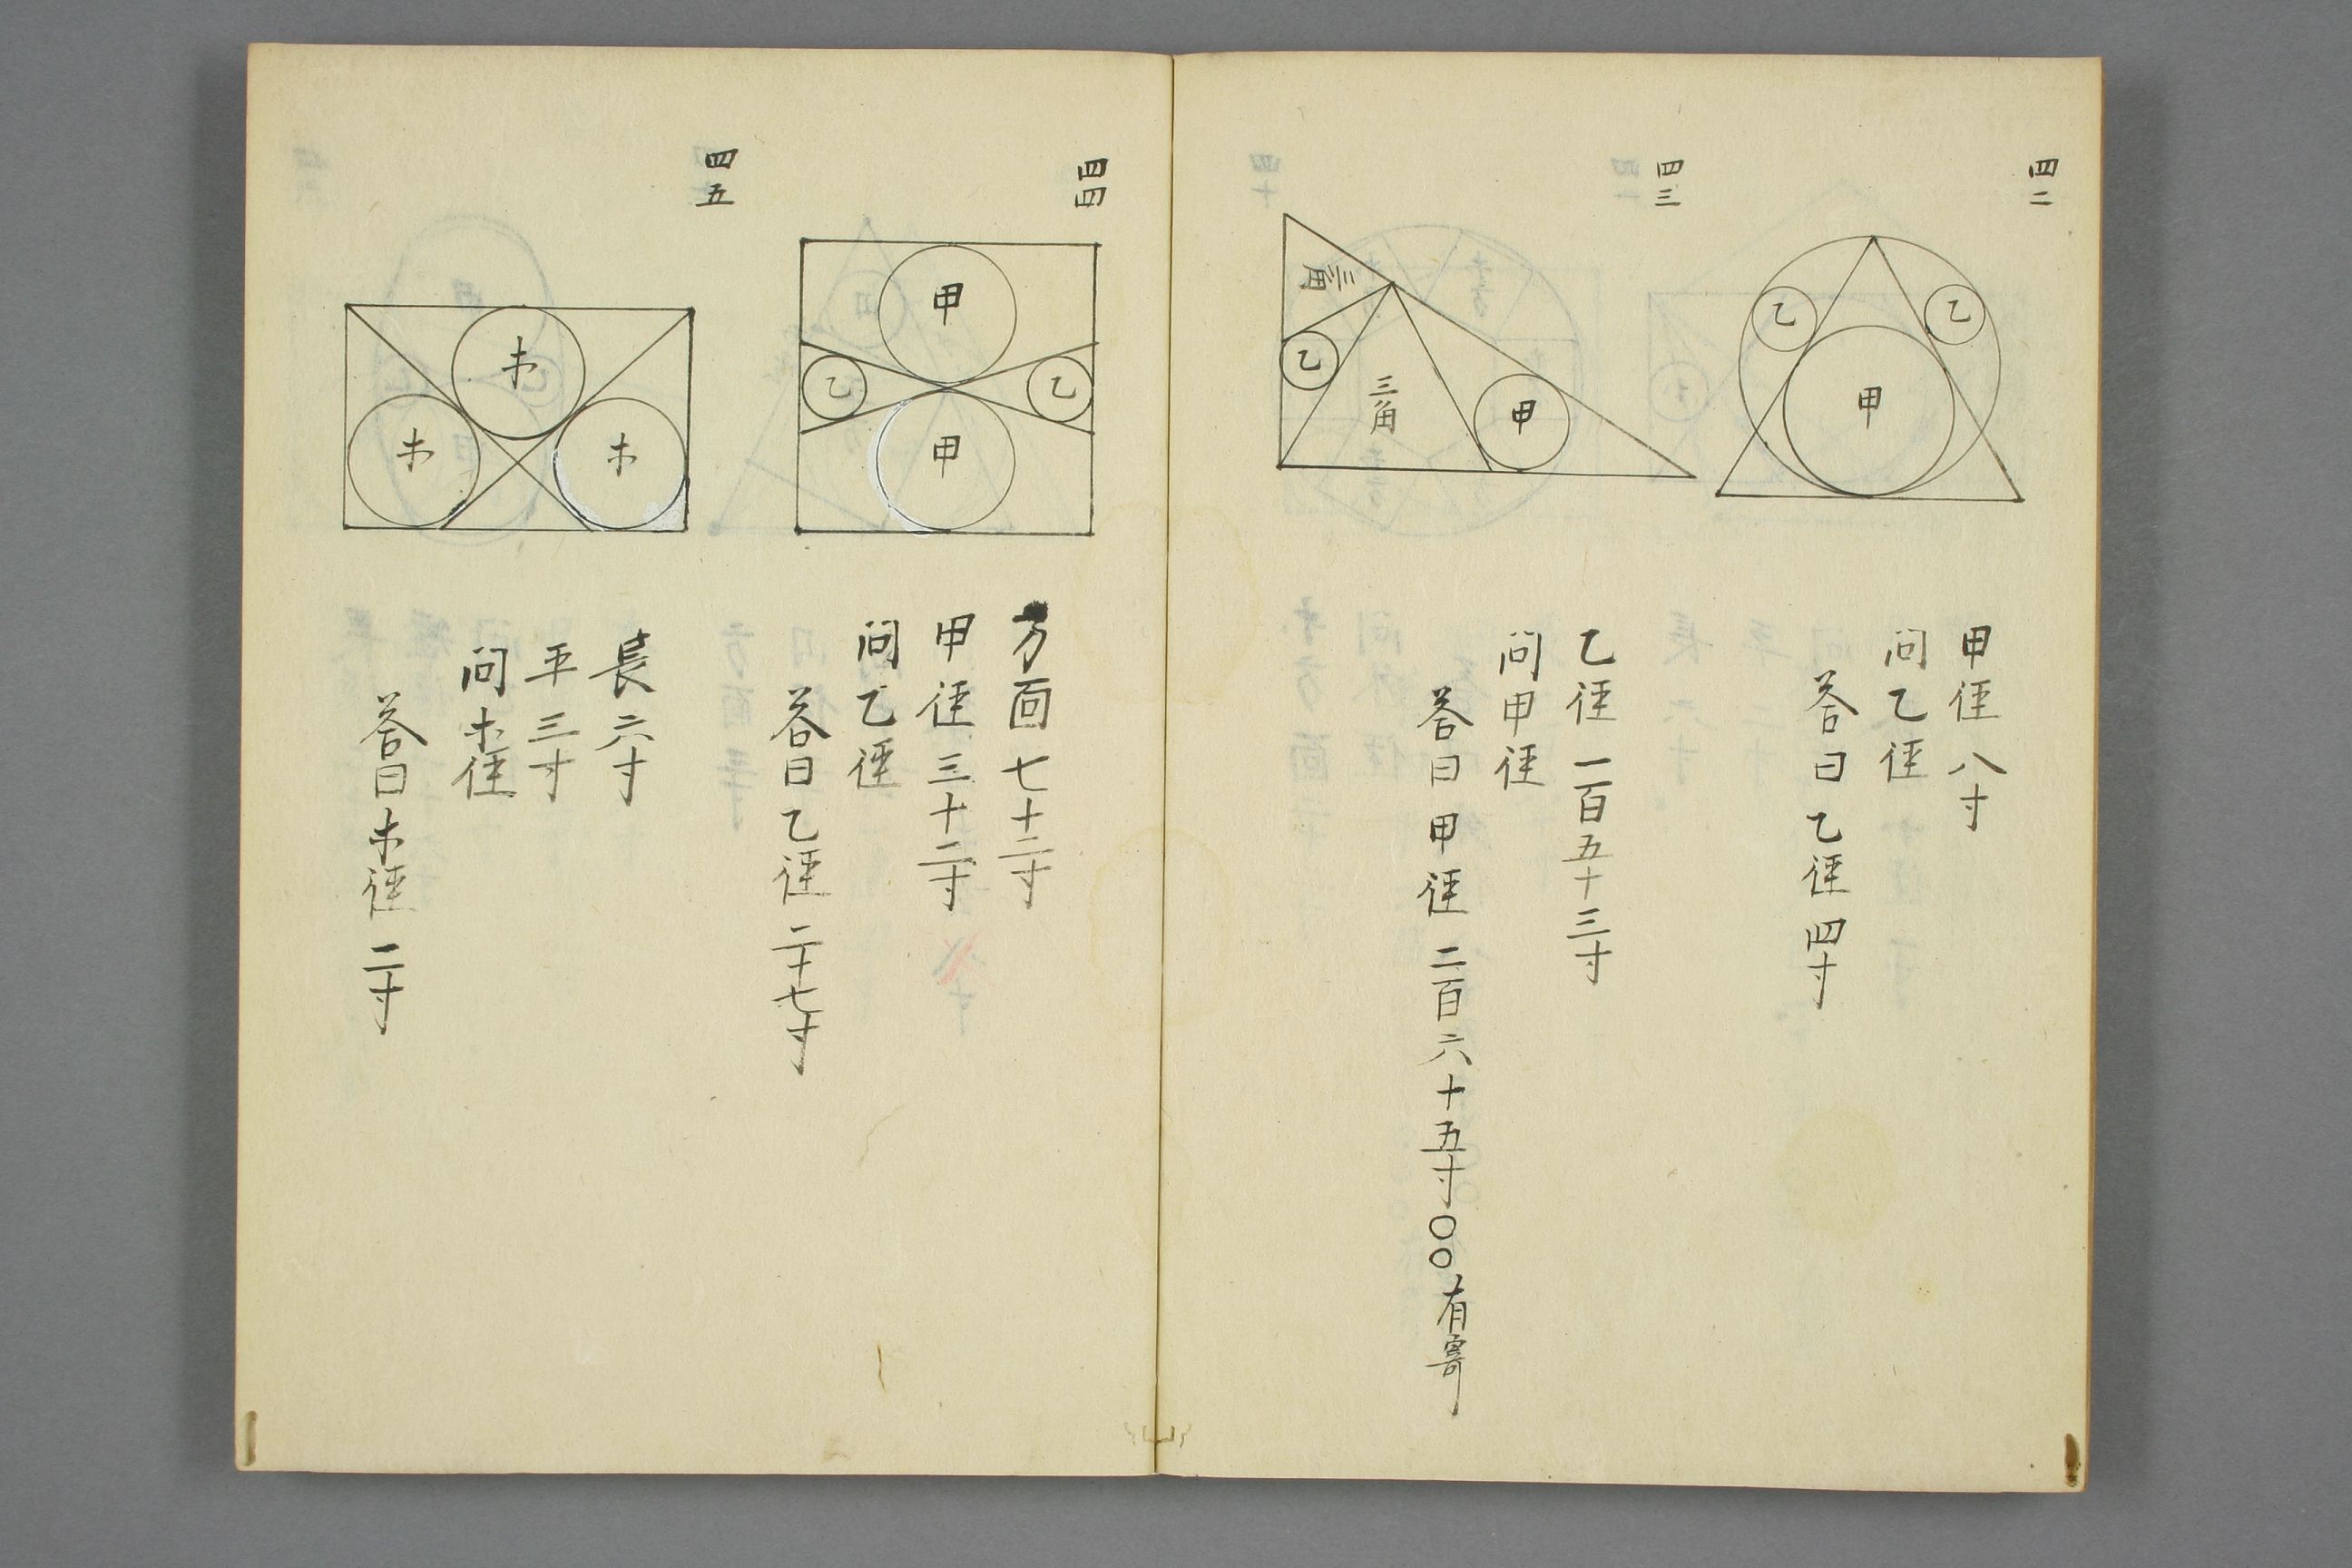 四二
乙
乙
甲
甲径八寸
問乙径
答曰乙径四寸
四三
三角
乙
三角
甲
乙径一百五十三寸
問甲径
答曰甲径二百六十五寸〇〇有寄
四四
甲
乙
乙
甲
方面七十二寸
甲径三十二寸
問乙径
答曰乙径二十七寸
四五
木
木
木
長六寸
平三寸
問木径
答曰木径二寸